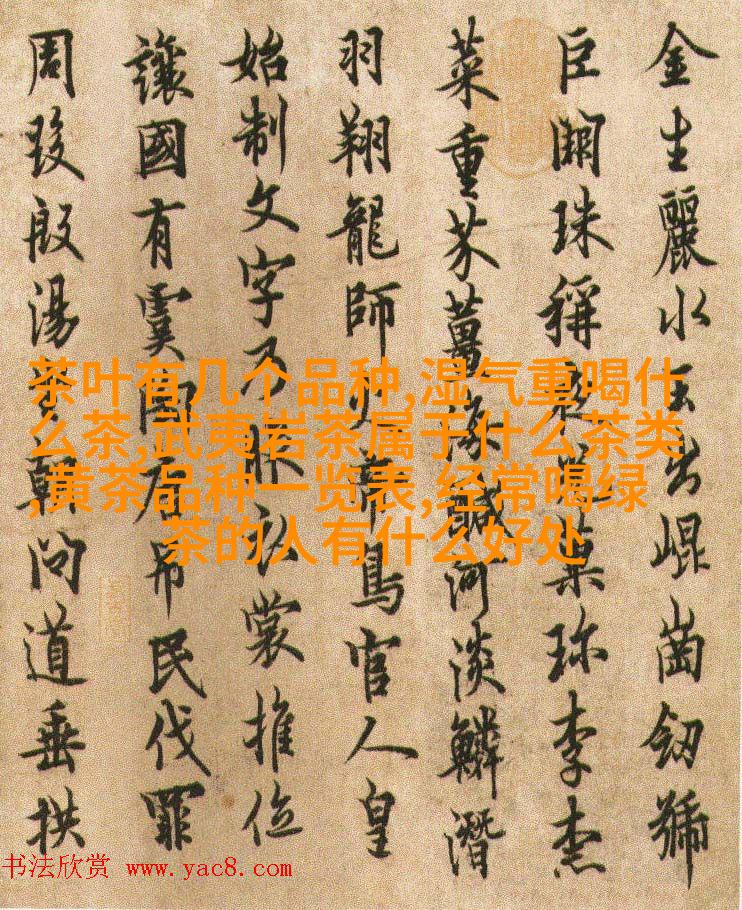 金生麗水玉出崐崗劒號
巨闕珠稱夜光菓珍李柰
菜重芥薑海鹹河淡鱗潛
羽翔龍師火帝鳥官人皇
始制文字乃服衣裳推位
讓國有虞陶唐吊民伐罪
周發殷湯坐朝問道垂拱
茶叶有几个品种,湿气重喝什
么茶,武夷岩茶属于什么茶类
,黄茶品种一览表,经常喝绿
茶的人有什么好处
书法欣赏 www.yac8.com